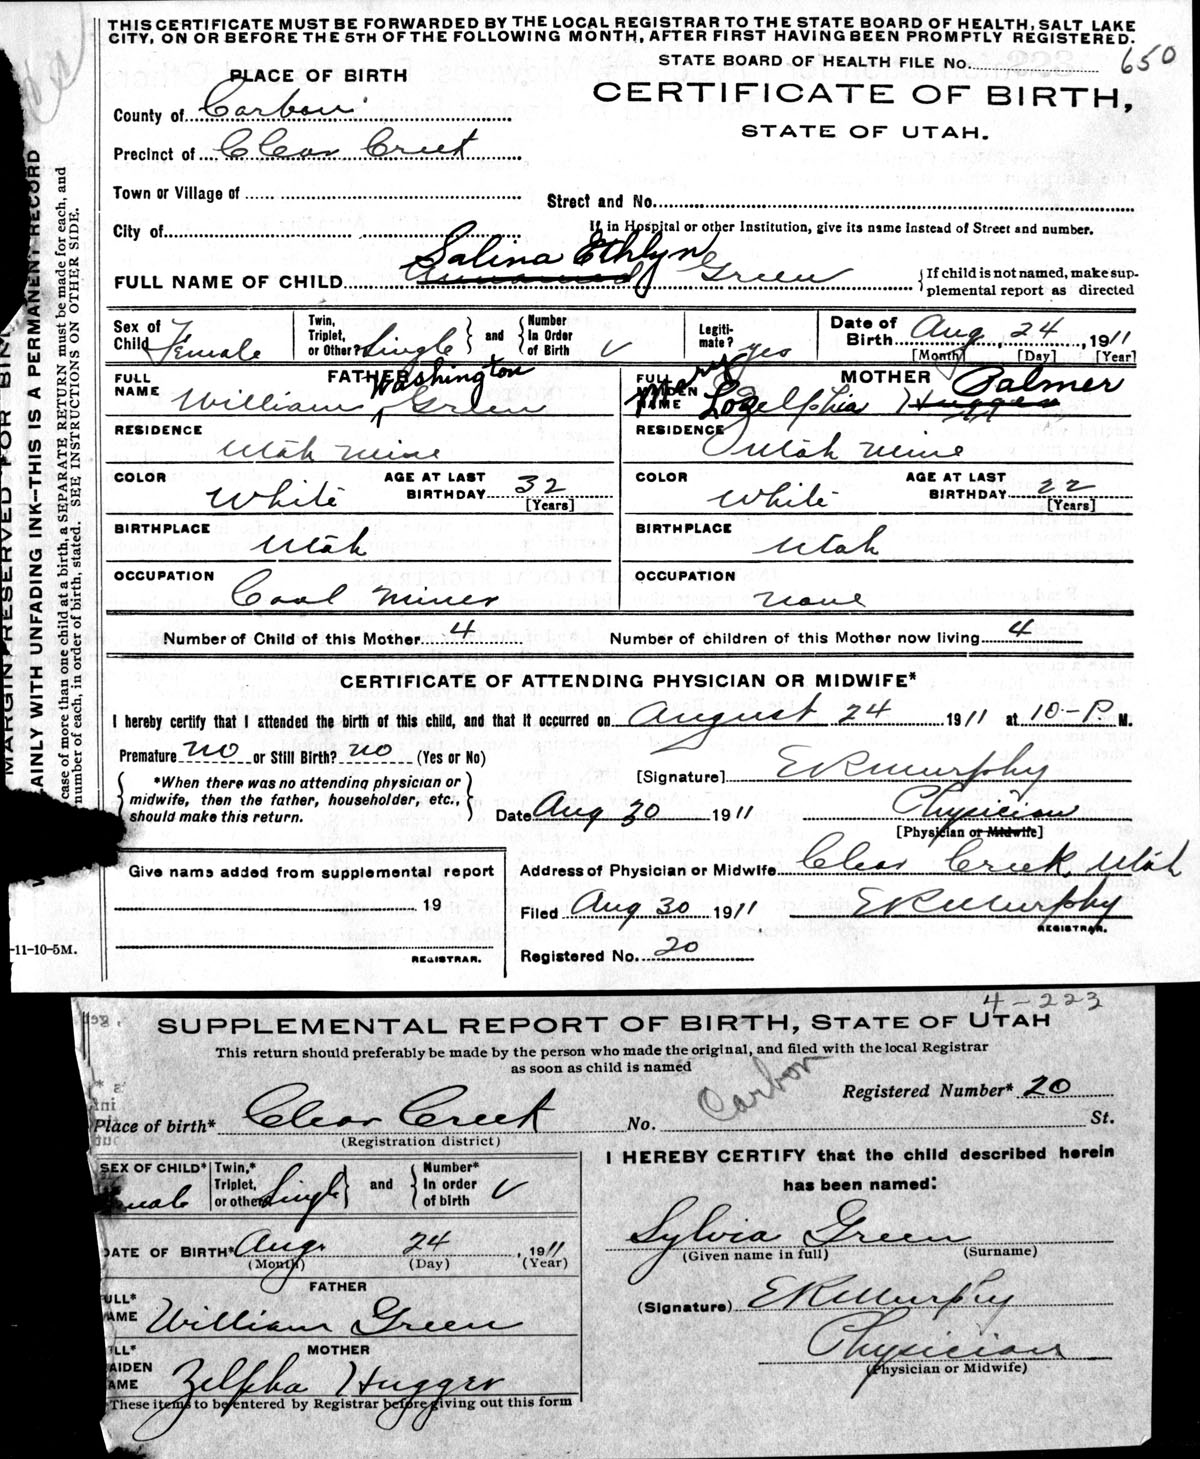 THIS CERTIFICATE MUST BE FORWARDED BY THE LOCAL REGISTRAR TO THE STATE BOARD OF HEALTH, SALT LAKE
CITY, ON OR BEFORE THE 5TH OF THE FOLLOWING MONTH, AFTER FIRST HAVING BEEN PROMPTLY REGISTERED.
STATE BOARD OF HEALTH FILE No. 650
PLACE OF BIRTH
CERTIFICATE OF BIRTH,
STATE OF UTAH.
County of Carbon
Precinct of Clear Creek
Town or Village of
Street and No.
City of
If in Hospital or other Institution, give its name instead of Street and number.
Salina Ethlyn
FULL NAME OF CHILD Unnamed Green
{If child is not named, make sup-
plemental report as directed
Sex of Child Female
Twin, Triplet, or Other? Single } and { Number In Order of Birth
Legiti-mate? yes
Date of Birth Aug, 24, 1911
[Month] [Day] [Year]
FATHER
FULL NAME William Washington Green
MOTHER
FULL MAIDEN NAME Mary Zelphia Hugger Palmer
RESIDENCE Utah Mine
RESIDENCE Utah Mine
COLOR White AGE AT LAST BIRTHDAY 32 [Years]
COLOR White AGE AT LAST BIRTHDAY 22 [Years]
BIRTHPLACE Utah
BIRTHPLACE Utah
OCCUPATION Coal Miner
OCCUPATION none
Number of Child of this Mother 4 Number of children of this Mother now living 4
CERTIFICATE OF ATTENDING PHYSICIAN OR MIDWIFE*
I hereby certify that I attended the birth of this child, and that it occurred on August 24 1911 at 10-P. M.
Premature no or Still Birth? no (Yes or No)
[Signature] E R Murphy
{*When there was no attending physician or
midwife, then the father, householder, etc.,
should make this return.}
Date Aug 30 1911 Physician
[Physician or Midwife]
Give name added from supplemental report
19
REGISTRAR.
Address of Physician or Midwife Clear Creek, Utah
Filed Aug 30 1911 E R Murphy
REGISTRAR.
Registered No. 20
-11-10-5M.
MARGIN RESERVED FOR
AINLY WITH UNFADING INK—THIS IS A PERMANENT RECORD
case of more than one child at a birth, a SEPARATE RETURN must be made for each, and
number of each, in order of birth, stated. SEE INSTRUCTIONS ON OTHER SIDE.
4-223
SUPPLEMENTAL REPORT OF BIRTH, STATE OF UTAH
This return should preferably be made by the person who made the original, and filed with the local Registrar
as soon as child is named
Carbon
Registered Number* 20
Place of birth* Clear Creek No. St.
(Registration district)
SEX OF CHILD*
Twin,* Triplet, or other Single } and { Number* In order of birth
I HEREBY CERTIFY that the child described herein
has been named:
Sylvia Green
(Given name in full) (Surname)
DATE OF BIRTH* Aug. 24, 1911
(Month) (Day) (Year)
FATHER
William Green
(Signature) E R Murphy
Physician
(Physician or Midwife)
MOTHER
Zelpha Hugger
These items to be entered by Registrar before giving out this form